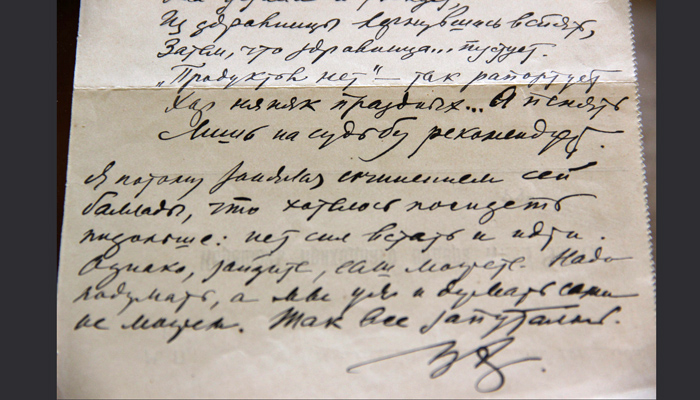 Из здравницы вернувшись вспять,
Затем, что здравница... пустует.
„Продуктов нет" — так рапортует
Хор нянек праздных... А пенять
Лишь на судьбу рекомендует.
Я потому занялся сочинением сей
баллады, что хотелось посидеть
подольше: нет сил встать и идти.
Однако, зайдите, если можете. Надо
подумать, а мы уж и думать сами
не можем. Так все запутались.